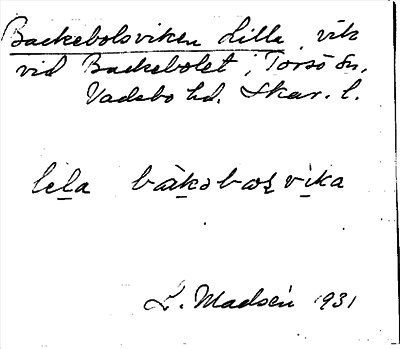 Backebolsviken Lilla, vik
vid Backebolet, Torsö sn,
Vadsbo hd. Skar. l.
lela bàkəbωʂvika
L. Madsén 1931